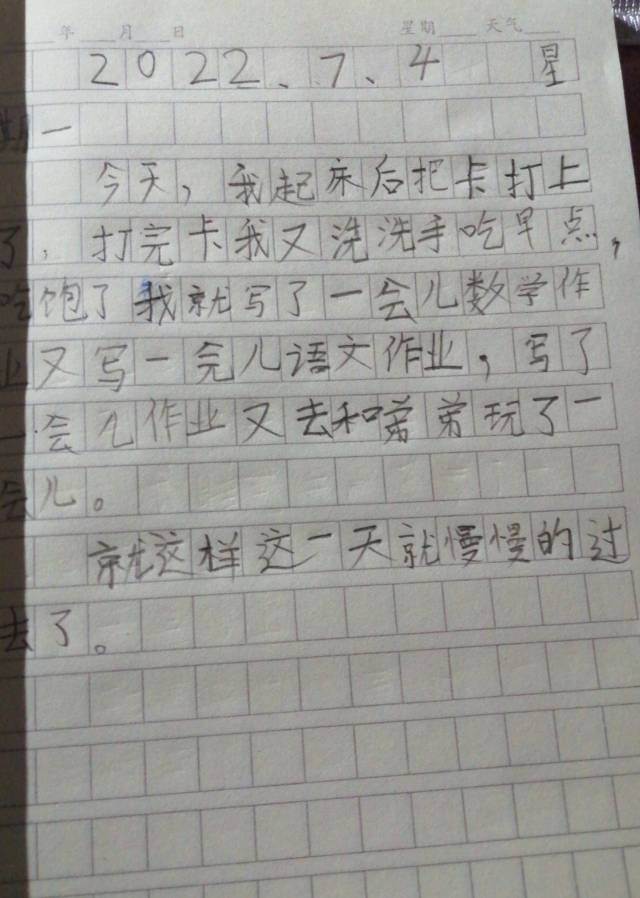 年 月 日 星期 天气
2022、7、4 星
期一
今天，我起床后把卡打上
了，打完卡我又洗洗手吃早点，
吃饱了我就写了一会儿数学作
业又写一完儿语文作业，写了
一会儿作业又去和嵹弟玩了一
会儿。
就这样这一天就慢慢的过
去了。